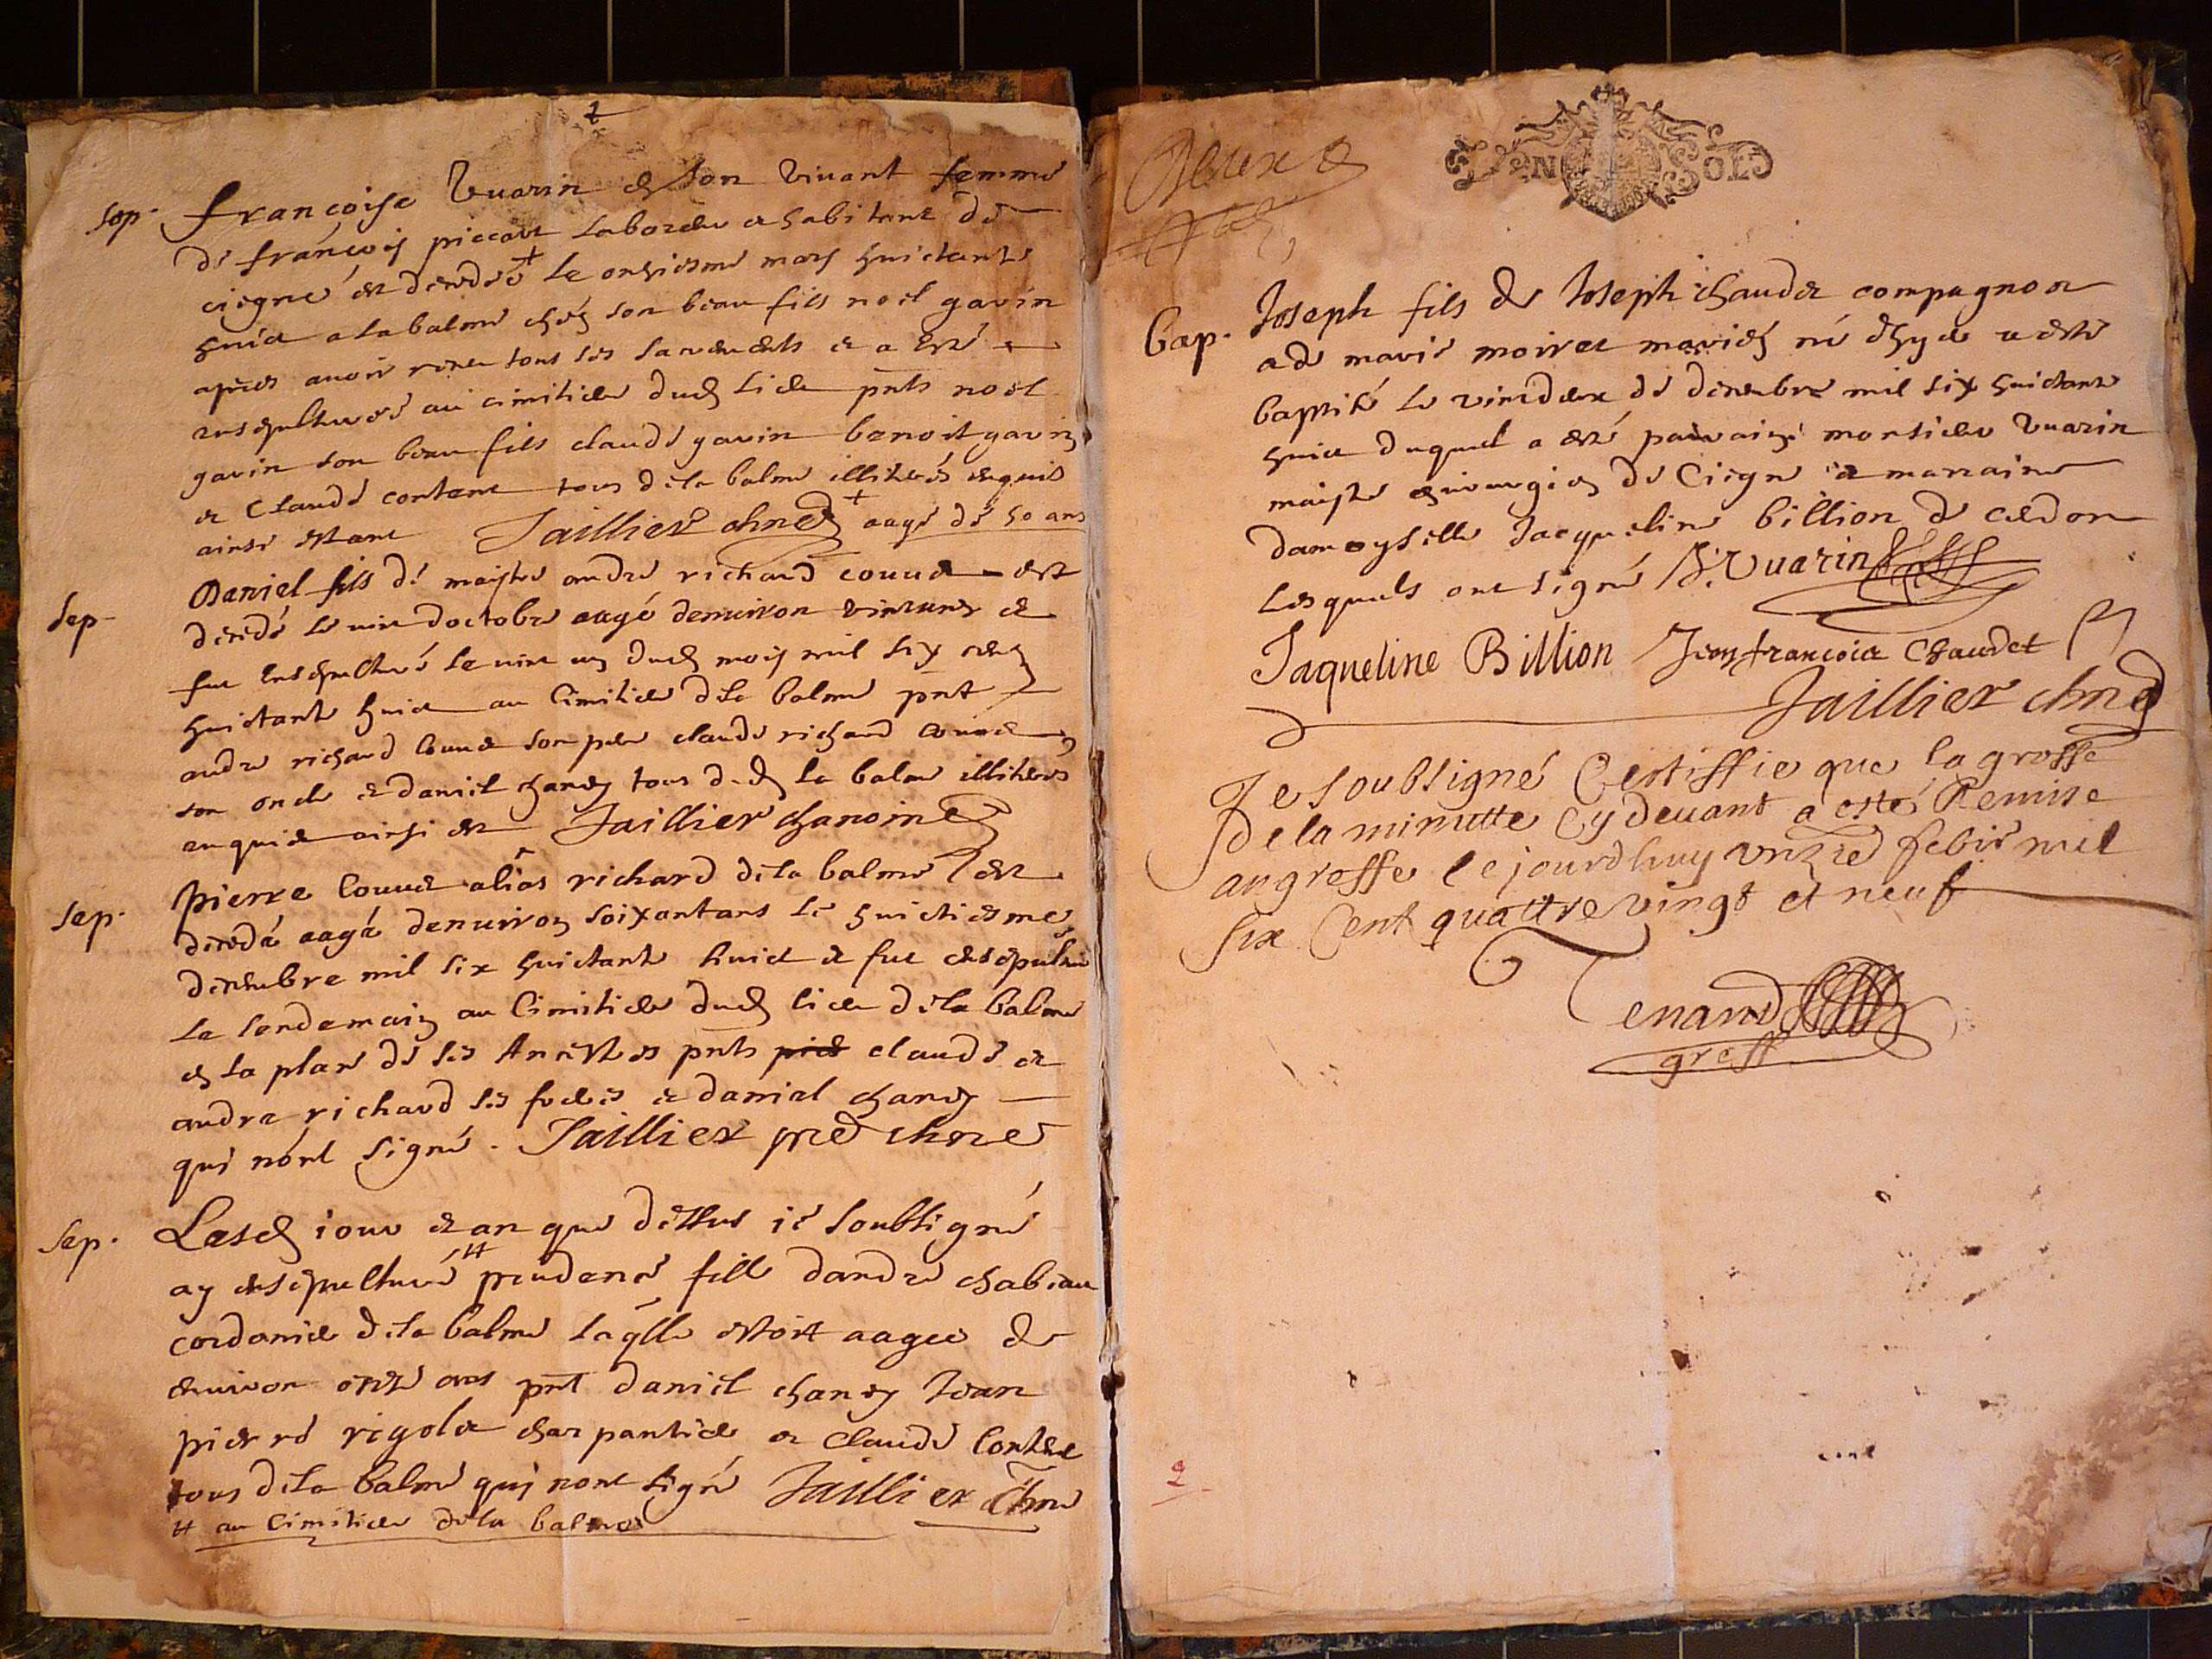 1
Sep. françoise Vuarin en son vivant femme
de françois piccart laboreur et habitant de
ciegne est decedée + le onziesme mars huictante
huict a la balme chez son beau fils noel gavin
apres avoir receu tous ses sacrements et a esté
ensepulturée au cimitiere dud lieu pnts noel
gavin son beau fils claude gavin benoit gavin
et Claude contant tous de la balme illiterés enquis
ainsi estant Jaillier chne + aagé de 50 ans
Sep. Daniel fils de maistre andre richard couuet est
decedé le vint doctobre aagé denuiron vint ans et
fut ensepulturé le vint un dud mois mil six cens
huictante huict au Cimitiere de la balme pnt
andre richard Couuet son pere claude richard Couuet
son oncle et daniel chaney tous dud la balme illiterés
enquis ainsi est Jaillier chanoine
Sep. Pierre Couuet alias richard de la balme est
decedé aagé denuiron soixantans le huictiesme
decembre mil six huictante huict et fut ensepulturé
le lendemain au Cimitiere dud lieu de la balme
en la place de ses Ancestres pnts claude et
andre richard ses freres et daniel chaney
qui nont signé. Jaillier pre chne
Sep. Lesd iour et an que dessus ie soubsigné
ay ensepulturé # prudence fille dandre chabeau
cordanier de la balme laqlle estoit aagee de
enuiron onze ans pnt daniel chaney Jean
pierre rigolet charpantier et Claude Contant
tous de la balme qui nont signé Jaillier chne
# au Cimitiere de la balme
Deux
DEN SOL
Bap. Joseph fils de Joseph chaudet compagnon
et de marie moiret mariés né dhyer a esté
baptisé le vintdeux de decembre mil six huictante
huict duquel a esté pairain monsieur Vuarin
maistre chirurgien de Ciegne et marraine
damoyselle Jacqueline billion de cerdon
Lesquels ont signé Vuarin
Jaqueline Billion Jean francois Chaudet
Jaillier chne
Je soubsigné Certiffie que la grosse
de la minutte Cy devant a esté Remise
au greffe le jourdhuy unze febvr mil
six Cent quattre vingt et neuf
Tenand
greff
2